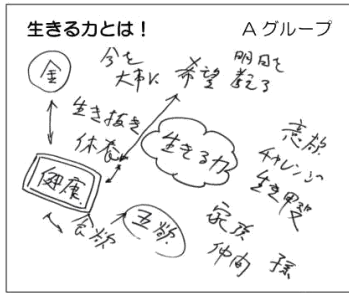 生きる力とは！
Aグループ
金
今を
大事に
希望
明日を
生き抜き
休養
生きる力
健康
食欲
五欲
意欲
チャレンジ
生き甲斐
家族
仲間
孫